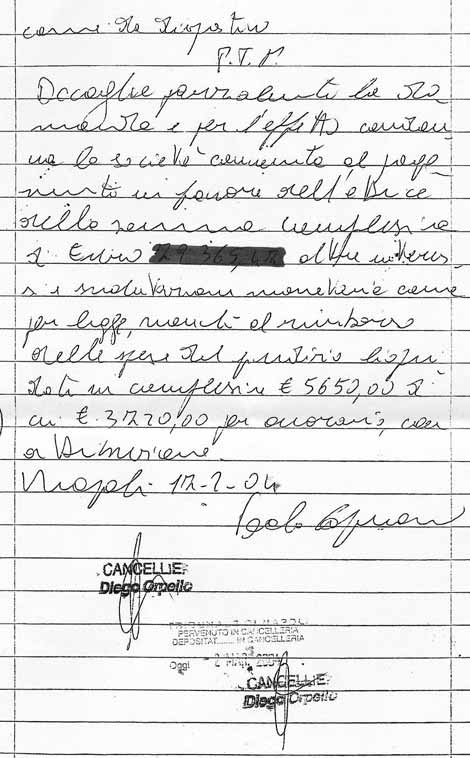 come da dispositivo
P.T.M.
Accoglie parzialmente la do
manda e per l'effetto condan
na la società convenuta al paga
mento in favore dell'attrice
della somma complessiva
di Euro oltre interes
si e svalutazione monetaria come
per legge, nonché al rimborso
delle spese del giudizio liqui
dati in complessive € 5650,00 di
cui € 3770,00 per onorario, con
attribuzione.
Napoli 12-2-04
CANCELLIE
Diego Orpello
PERVENUTO IN CANCELLERIA
DEPOSITAT......... IN CANCELLERIA
Oggi
CANCELLIE
Diego Orpello